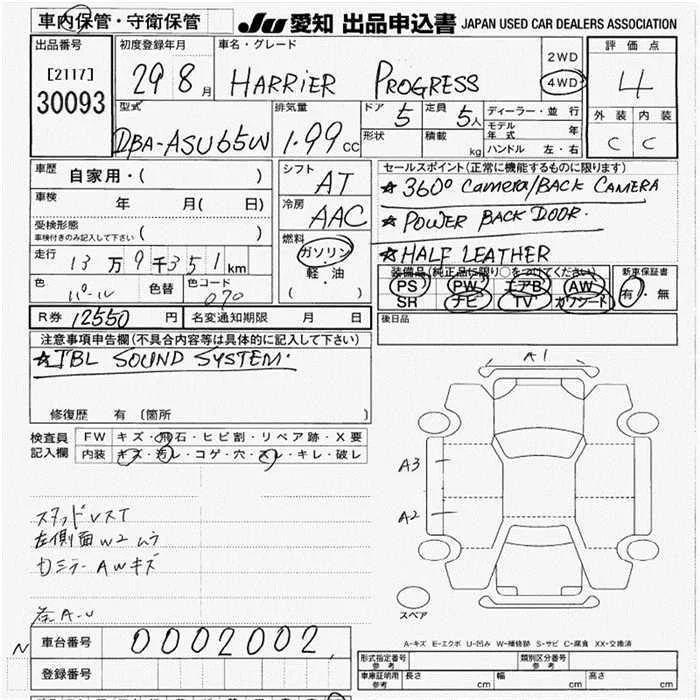 車内保管・守衛保管
JU 愛知 出品申込書 JAPAN USED CAR DEALERS ASSOCIATION
出品番号
[2117]
30093
初度登録年月
29 8月
車名・グレード
HARRIER PROGRESS
2WD
4WD
評価点
4
外装 内装
C C
型式
DBA-ASU65W
排気量
1.99cc
ドア
5
定員
5人
形状
積載
kg
ディーラー・並行
モデル年式 年
ハンドル 左・右
車歴
自家用・( )
車検
年 月( 日)
受検形態
車検付きのみ記入して下さい ( )
走行
13万9千351km
色
パール
色替
色コード
070
シフト
AT
冷房
AAC
燃料
ガソリン
・
軽・油
( )
セールスポイント(正常に機能するものに限ります)
★360° Camera/BACK CAMERA
★POWER BACK DOOR.
★HALF LEATHER
装備品(純正品に限り○をつけてください)
PS PW エアB AW
SR ナビ TV カワシート
新車保証書
有・無
R券 12550円 名変通知期限 月 日
後日品
注意事項申告欄(不具合内容等は具体的に記入して下さい)
★JBL SOUND SYSTEM.
修復歴 有 〔箇所 〕
検査員
記入欄
FW キズ・飛石・ヒビ割・リペア跡・X要
内装 キズ・汚レ・コゲ・穴・スレ・キレ・破レ
A1
A3
A2
左側面W2ムラ
ミラーAWキズ
A-U
スペア
A-キズ E-エクボ U-凹み W-補修跡 S-サビ C-腐食 XX-交換済
N
車台番号 0002002
登録番号
形式指定番号 参考
類別区分番号 参考
車庫証明用 参考 長さ cm 幅 cm 高さ cm